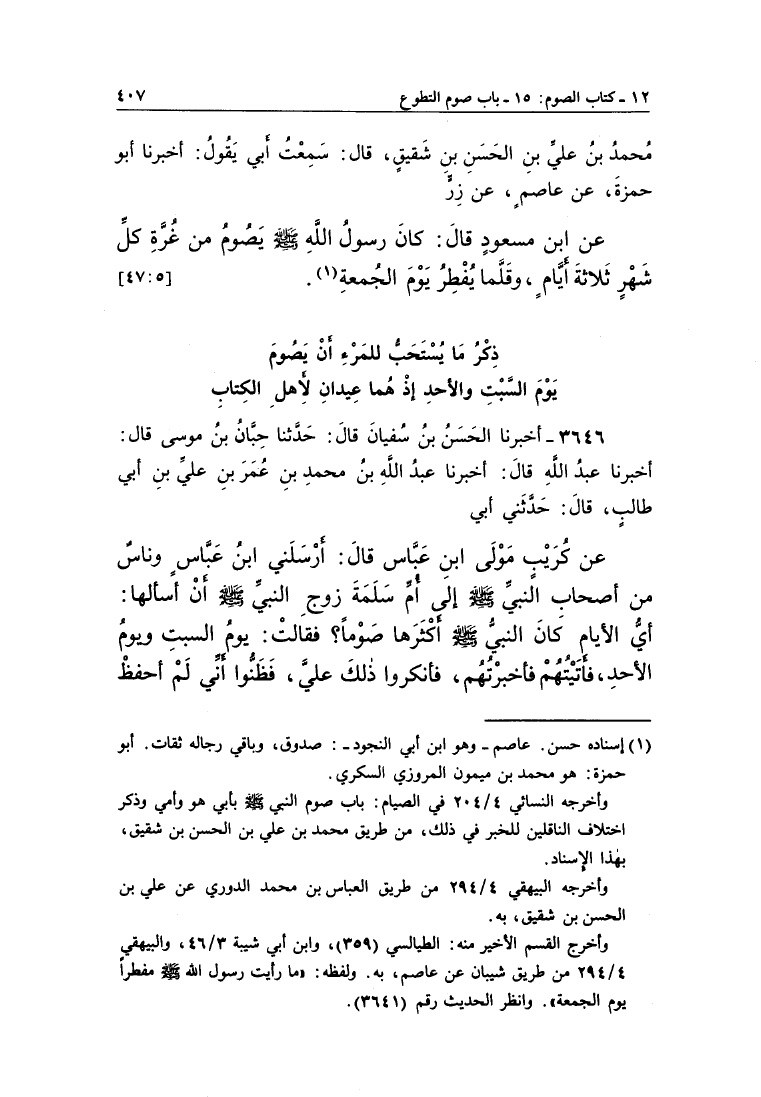 ١٢ ـ كتاب الصوم: ١٥ ـ باب صوم التطوع ٤٠٧
مُحمدُ بنُ عليِّ بنِ الحَسَنِ بنِ شَقيقٍ، قال: سَمِعْتُ أبي يَقُولُ: أخبرنا أبو
حمزةَ، عن عاصمٍ، عن زِرٍّ
عن ابنِ مسعودٍ قالَ: كانَ رسولُ اللَّهِ ﷺ يَصُومُ من غُرَّةِ كلِّ
شَهْرٍ ثَلاثةَ أَيَّامٍ، وقَلَّما يُفْطِرُ يَوْمَ الجُمعةِ(١). [٤٧:٥]
ذِكْرُ مَا يُسْتَحَبُّ للمَرْءِ أَنْ يَصُومَ
يَوْمَ السَّبْتِ والأحدِ إذْ هُما عِيدانِ لأهلِ الكِتابِ
٣٦٤٦ ـ أخبرنا الحَسَنُ بنُ سُفيانَ قالَ: حَدَّثنا حِبَّانُ بنُ موسى قال:
أخبرنا عبدُ اللَّهِ قالَ: أخبرنا عبدُ اللَّهِ بنُ محمدِ بنِ عُمَرَ بنِ عليِّ بنِ أبي
طالبٍ، قالَ: حَدَّثَني أبي
عن كُرَيْبٍ مَوْلَى ابنِ عَبَّاسٍ قالَ: أَرْسَلَني ابنُ عَبَّاسٍ وناسٌ
من أصحابِ النبيِّ ﷺ إلى أُمِّ سَلَمَةَ زوجِ النبيِّ ﷺ أَنْ أسألها:
أيُّ الأيامِ كانَ النبيُّ ﷺ أَكْثَرَها صَوْماً؟ فقالتْ: يومُ السبتِ ويومُ
الأحدِ، فأَتَيْتُهُمْ فأخبرْتُهُم، فأنكروا ذٰلكَ عليَّ، فَظَنُّوا أَنِّي لَمْ أحفظْ
(١) إسناده حسن. عاصم ـ وهو ابن أبي النجود ـ: صدوق، وباقي رجاله ثقات. أبو
حمزة: هو محمد بن ميمون المروزي السكري.
وأخرجه النسائي ٢٠٤/٤ في الصيام: باب صوم النبي ﷺ بأبي هو وأمي وذكر
اختلاف الناقلين للخبر في ذلك، من طريق محمد بن علي بن الحسن بن شقيق،
بهٰذا الإِسناد.
وأخرجه البيهقي ٢٩٤/٤ من طريق العباس بن محمد الدوري عن علي بن
الحسن بن شقيق، به.
وأخرج القسم الأخير منه: الطيالسي (٣٥٩)، وابن أبي شيبة ٤٦/٣، والبيهقي
٢٩٤/٤ من طريق شيبان عن عاصم، به. ولفظه: «ما رأيت رسول الله ﷺ مفطراً
يوم الجمعة». وانظر الحديث رقم (٣٦٤١).